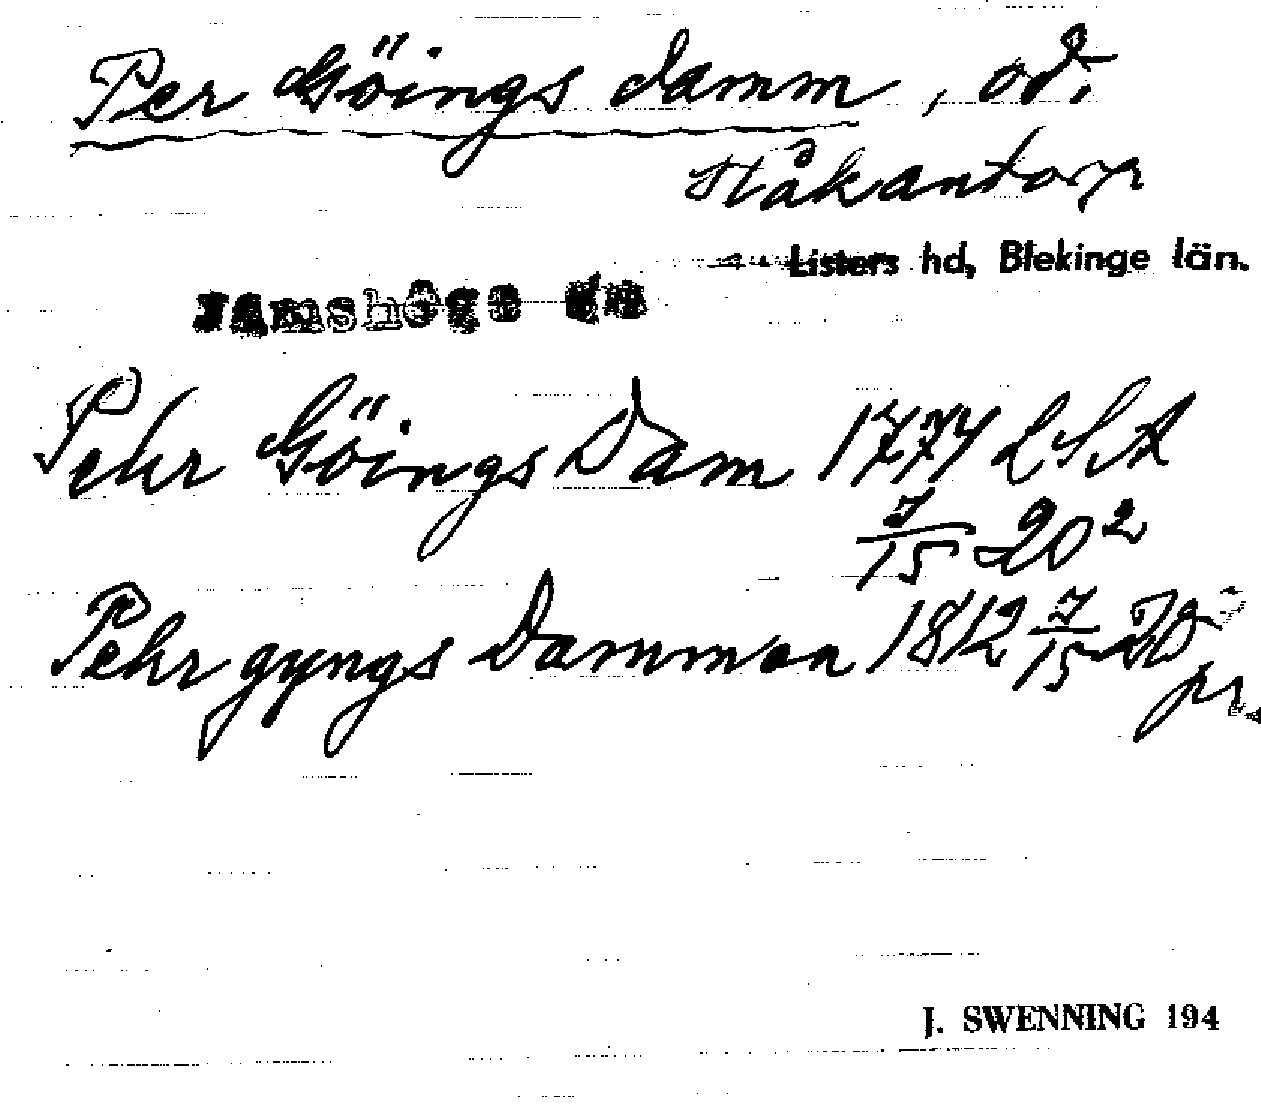 Per Göings damm, od.
Håkantorp
Listers hd, Blekinge län.
Jämshögs sn
Pehr Göings Dam 1774 LSA
7/15-20²
Pehr gyngs Damman 1812 7/15-20
pr.
J. SWENNING 194